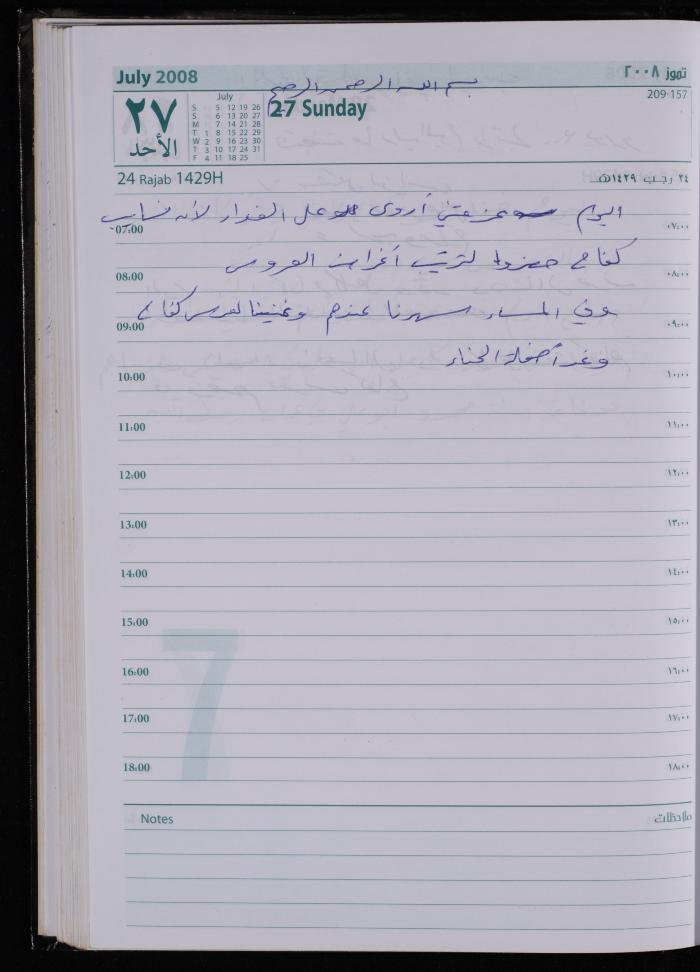 July 2008
تموز ٢٠٠٨
بسم الله الرحمن الرحيم
209-157
٢٧
الأحد
July
S 5 12 19 26
S 6 13 20 27
M 7 14 21 28
T 1 8 15 22 29
W 2 9 16 23 30
T 3 10 17 24 31
F 4 11 18 25
27 Sunday
24 Rajab 1429H
٢٤ رجب ١٤٢٩هـ
اليوم عزمتني أروى على الغداء لأنه نساب
07:00 ٠٧:٠٠
كفاح حضروا لترتيب أغراض العروس
08:00 ٠٨:٠٠
وفي المساء سهرنا عندهم وغنينا لعرس كفاح
09:00 ٠٩:٠٠
وغداً حفلة الحناء
10:00 ١٠:٠٠
11:00 ١١:٠٠
12:00 ١٢:٠٠
13:00 ١٣:٠٠
14:00 ١٤:٠٠
15:00 ١٥:٠٠
16:00 ١٦:٠٠
17:00 ١٧:٠٠
18:00 ١٨:٠٠
7
Notes ملاحظات